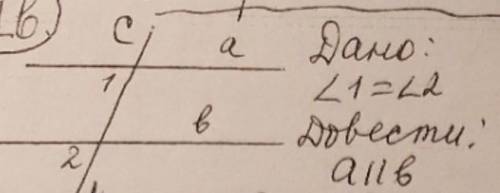 с
а
1
в
2
Дано:
∠1=∠2
Довести:
а||в